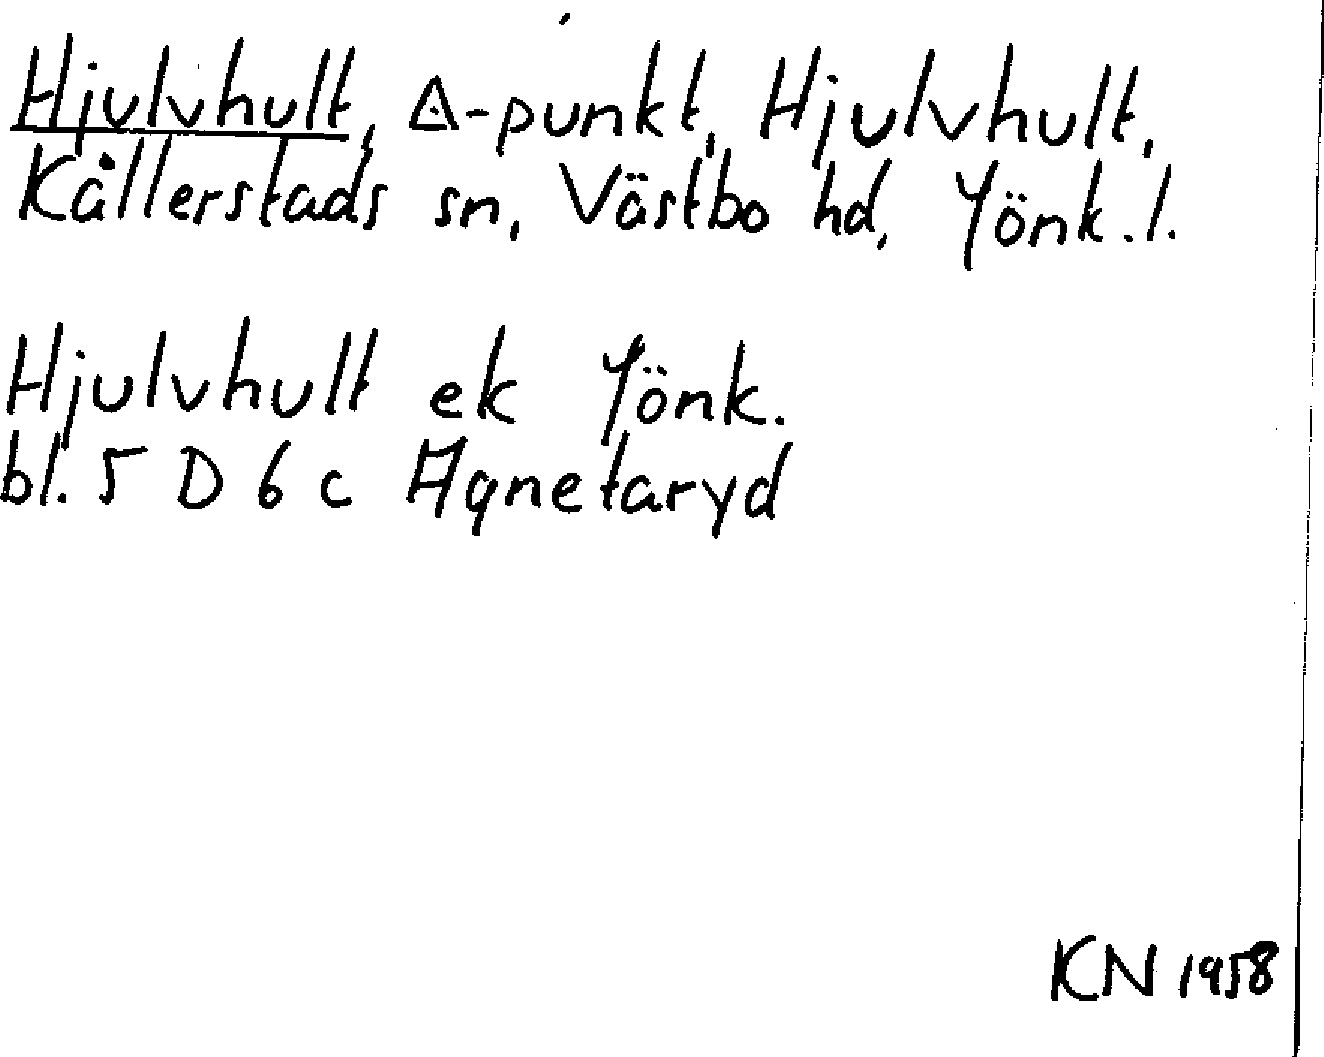 Hjulvhult, △-punkt, Hjulvhult,
Kållerstads sn, Västbo hd, Jönk.l.
Hjulvhult ek Jönk.
bl. 5 D 6 c Agnetaryd
KN 1958